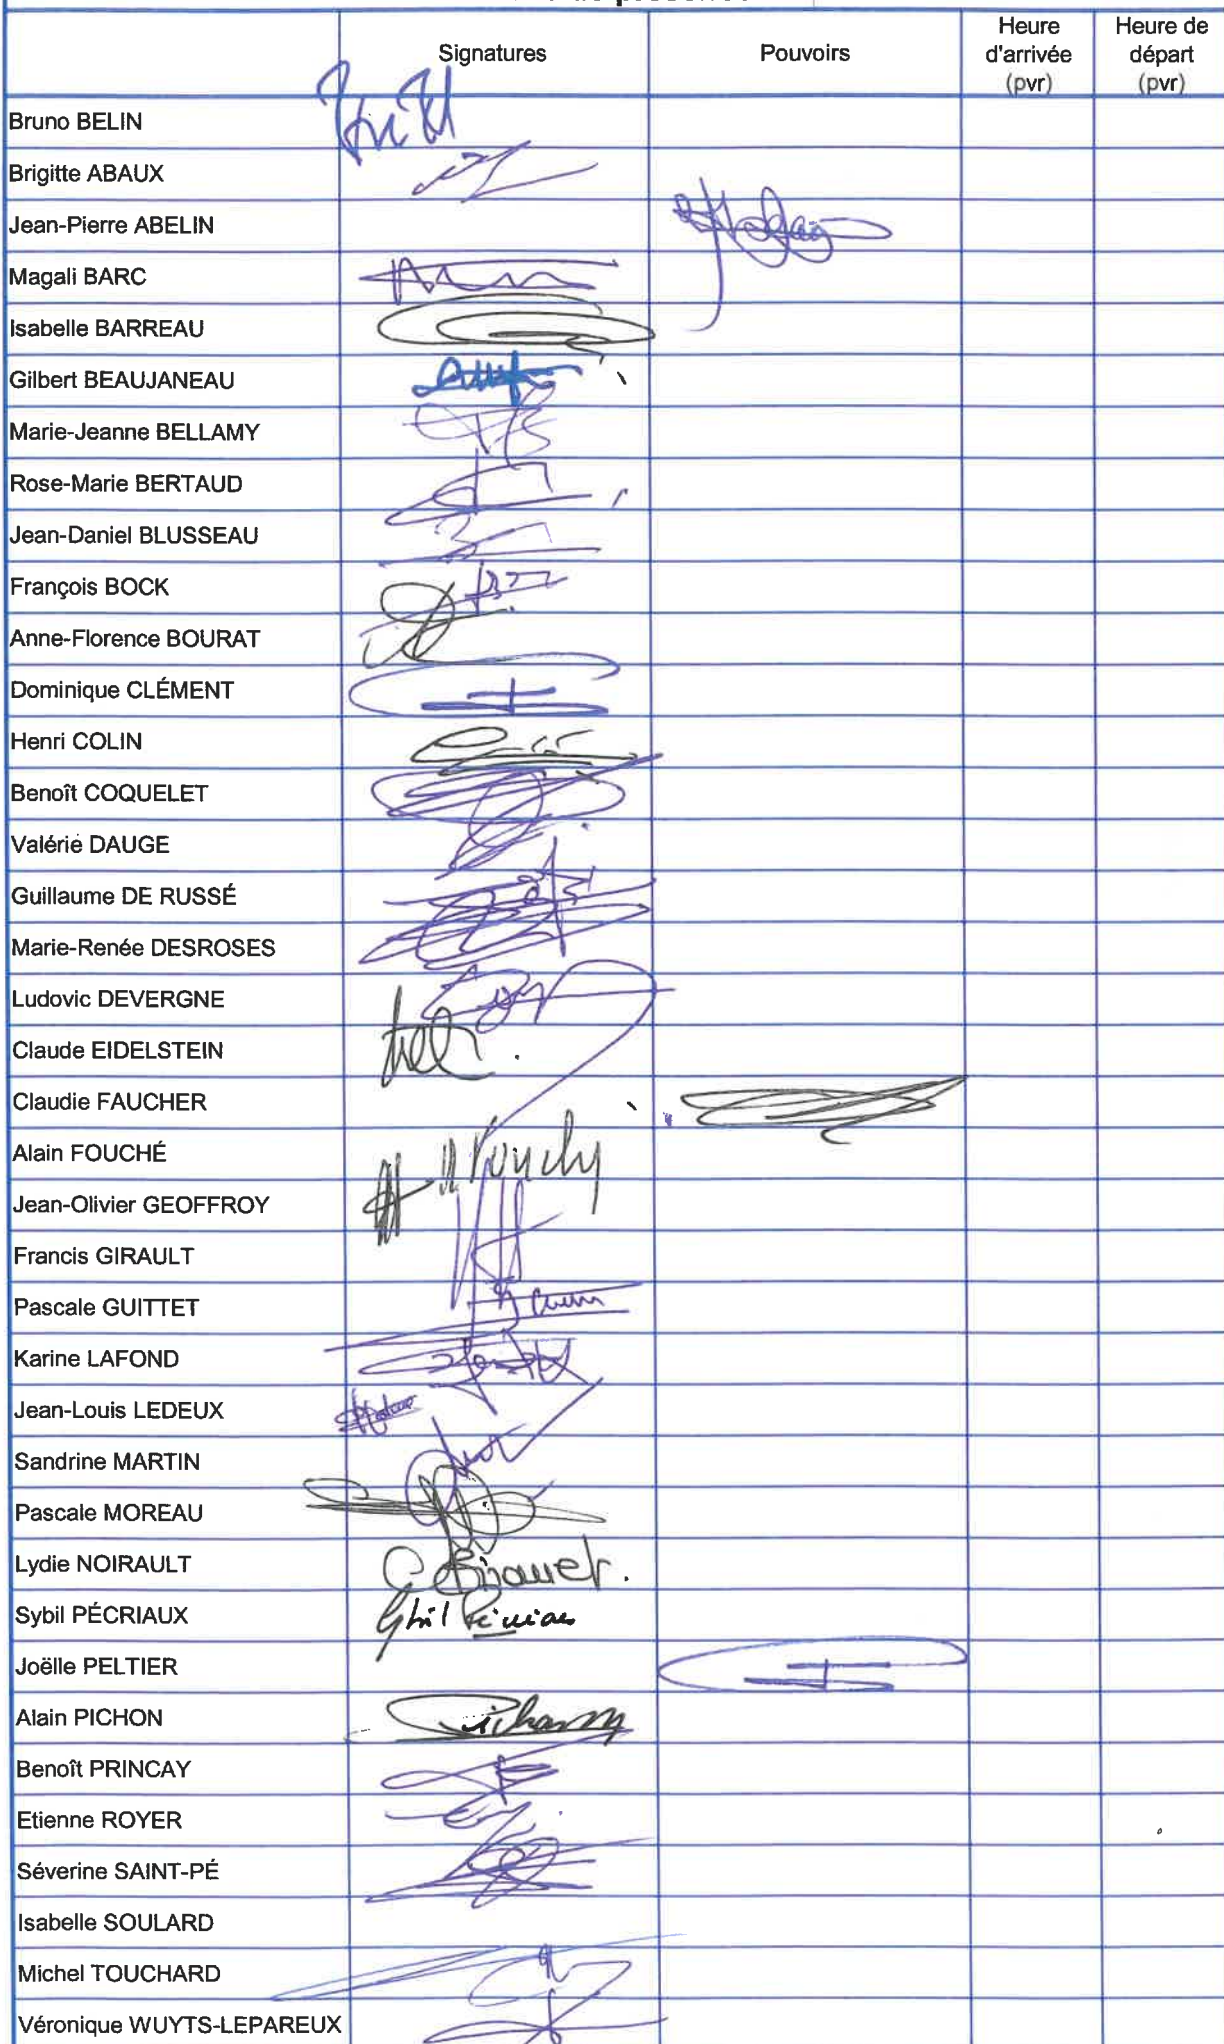 Signatures
Pouvoirs
Heure
d'arrivée
(pvr)
Heure de
départ
(pvr)
Bruno BELIN
Brigitte ABAUX
Jean-Pierre ABELIN
Magali BARC
Isabelle BARREAU
Gilbert BEAUJANEAU
Marie-Jeanne BELLAMY
Rose-Marie BERTAUD
Jean-Daniel BLUSSEAU
François BOCK
Anne-Florence BOURAT
Dominique CLÉMENT
Henri COLIN
Benoît COQUELET
Valérie DAUGE
Guillaume DE RUSSÉ
Marie-Renée DESROSES
Ludovic DEVERGNE
Claude EIDELSTEIN
Claudie FAUCHER
Alain FOUCHÉ
Jean-Olivier GEOFFROY
Francis GIRAULT
Pascale GUITTET
Karine LAFOND
Jean-Louis LEDEUX
Sandrine MARTIN
Pascale MOREAU
Lydie NOIRAULT
Sybil PÉCRIAUX
Joëlle PELTIER
Alain PICHON
Benoît PRINCAY
Etienne ROYER
Séverine SAINT-PÉ
Isabelle SOULARD
Michel TOUCHARD
Véronique WUYTS-LEPAREUX